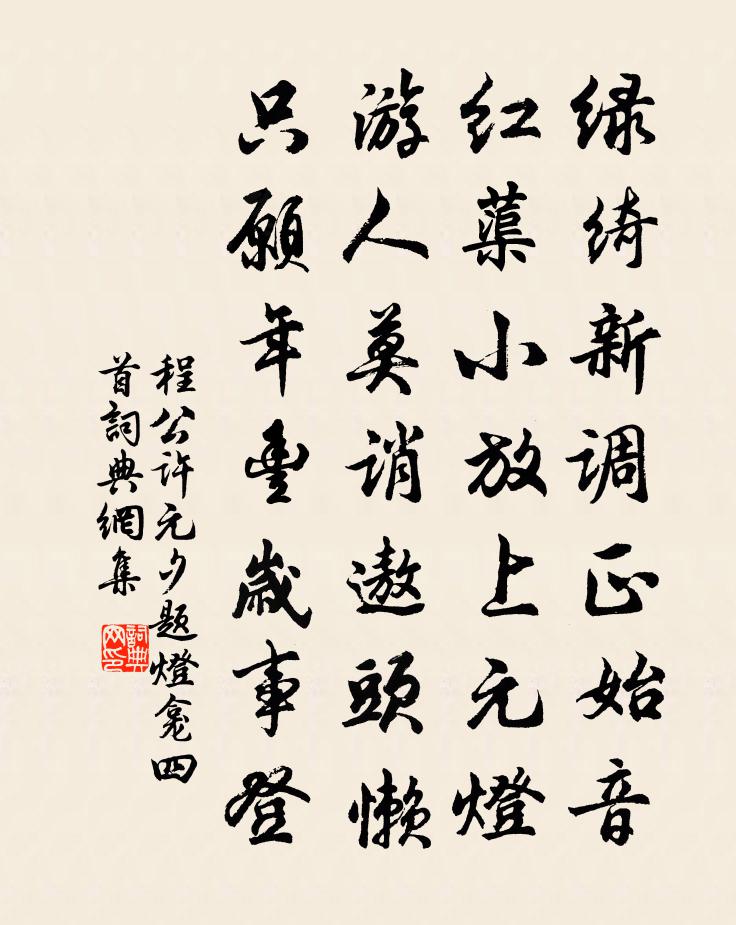 绿綺新调正始音
红蕖小放上元燈
游人莫誚遨頭懒
只願年豐歲事登
程公许元夕題燈龛四
首詞典網集
詞典
网印